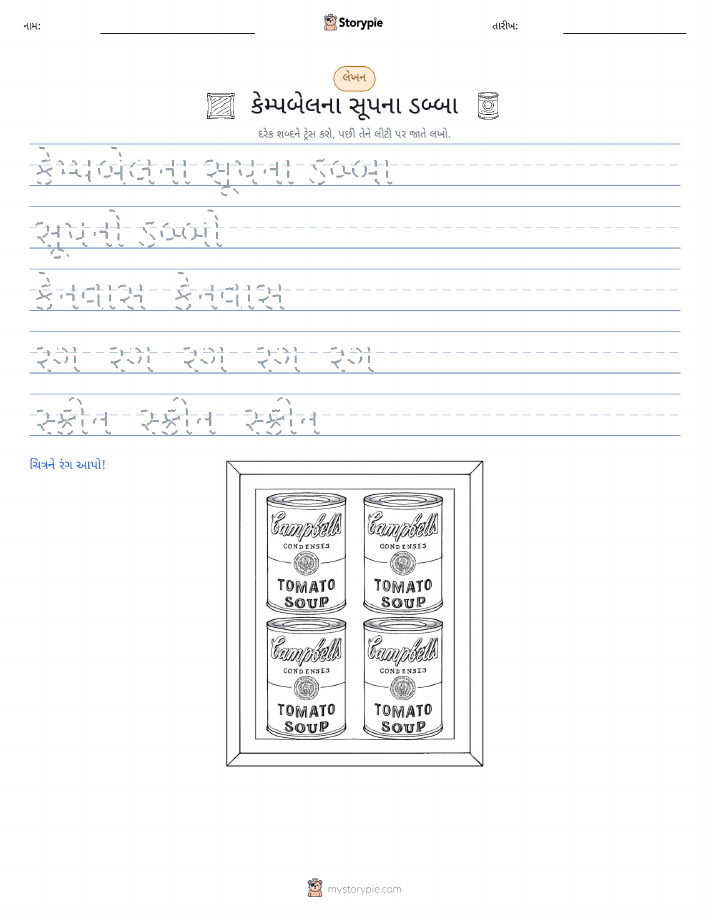 નામ: Storypie તારીખ:
લેખન
કેમ્પબેલના સૂપના ડબ્બા
દરેક શબ્દને ટ્રેસ કરો, પછી તેને લીટી પર જાતે લખો.
કેમ્પબેલના સૂપના ડબ્બા
સૂપનો ડબ્બો
કેનવાસ કેનવાસ
રંગ રંગ રંગ રંગ રંગ
સ્ક્રીન સ્ક્રીન સ્ક્રીન
ચિત્રને રંગ આપો!
Campbells Campbells
CONDENSES CONDENSES
TOMATO TOMATO
SOUP SOUP
Campbells Campbells
CONDENSES CONDENSES
TOMATO TOMATO
SOUP SOUP
mystorypie.com